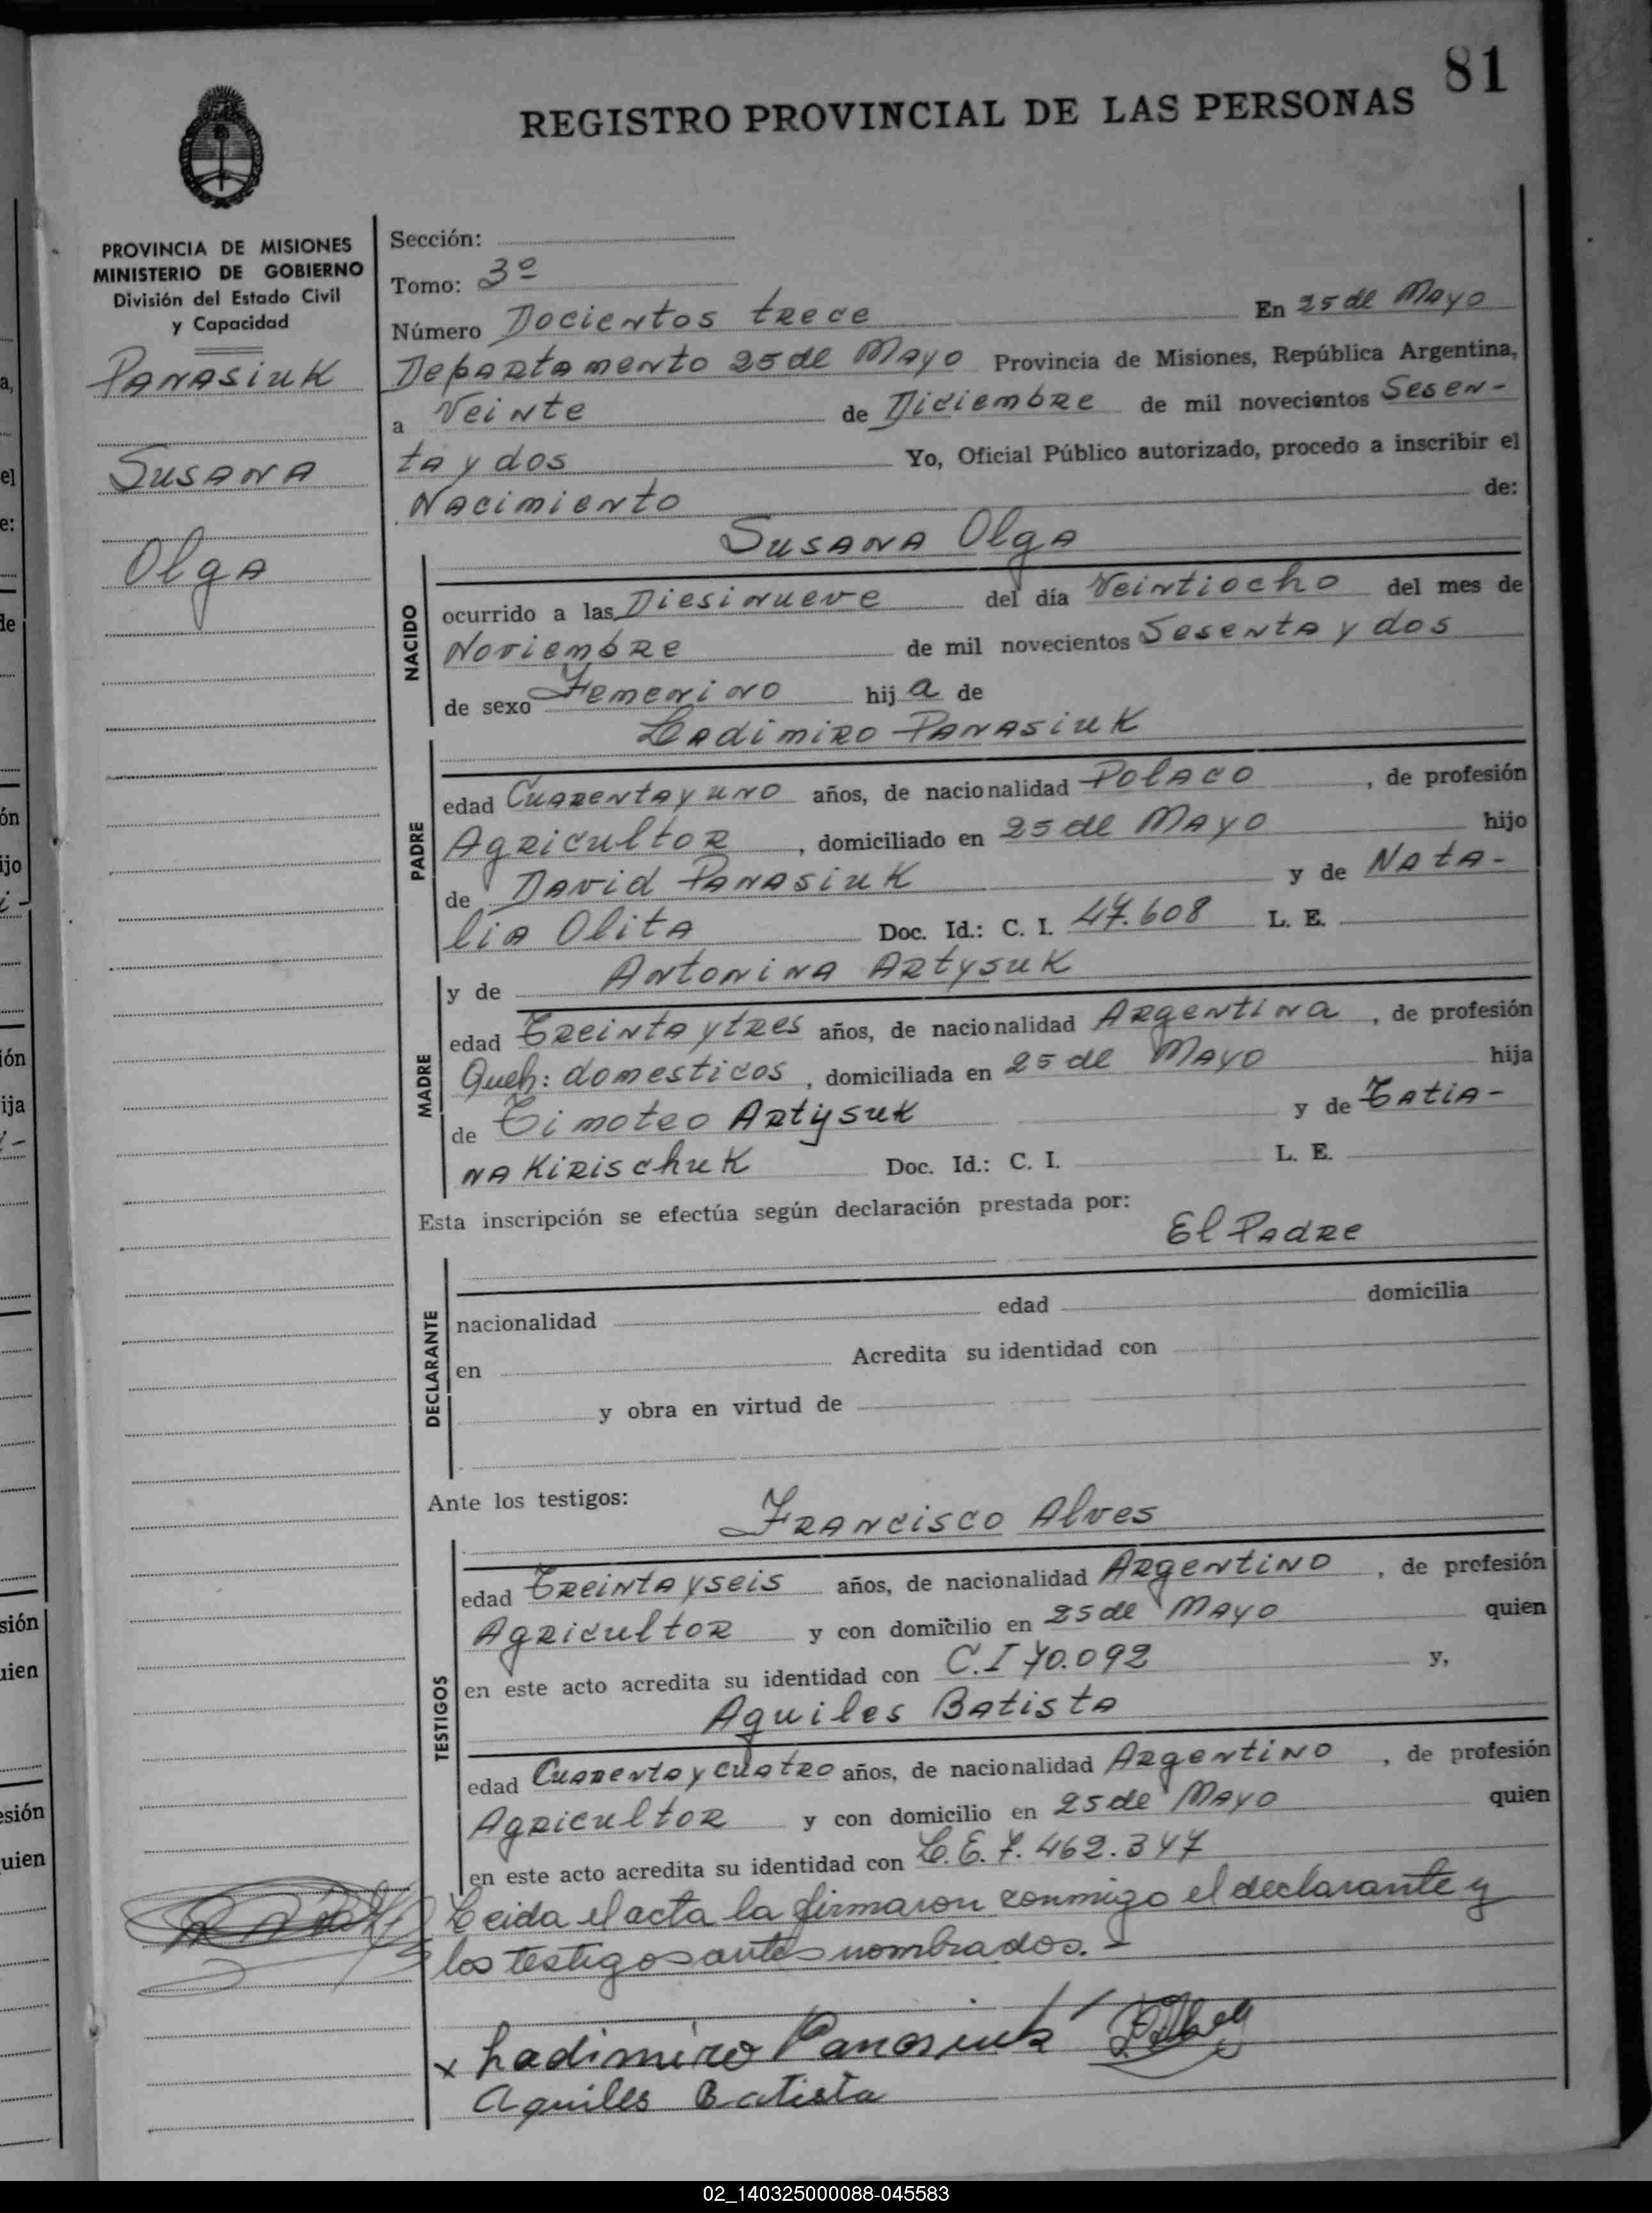 81
REGISTRO PROVINCIAL DE LAS PERSONAS
PROVINCIA DE MISIONES
MINISTERIO DE GOBIERNO
División del Estado Civil
y Capacidad
Panasiuk
Susana
Olga
Sección:
Tomo: 3º
Número Docientos trece En 25 de Mayo
Departamento 25 de Mayo Provincia de Misiones, República Argentina,
a Veinte de Diciembre de mil novecientos Sesen-
ta y dos Yo, Oficial Público autorizado, procedo a inscribir el
Nacimiento de:
Susana Olga
NACIDO
ocurrido a las Diesinueve del día Veintiocho del mes de
Noviembre de mil novecientos Sesenta y dos
de sexo Femenino hija de
Ladimiro Panasiuk
PADRE
edad Cuarenta y uno años, de nacionalidad Polaco, de profesión
Agricultor, domiciliado en 25 de Mayo hijo
de David Panasiuk y de Nata-
lia Olita Doc. Id.: C. I. 47.608 L. E.
y de Antonina Artysuk
MADRE
edad Treinta y tres años, de nacionalidad Argentina, de profesión
Queh: domesticos, domiciliada en 25 de Mayo hija
de Timoteo Artysuk y de Tatia-
na Kirischuk Doc. Id.: C. I. L. E.
Esta inscripción se efectúa según declaración prestada por:
El Padre
DECLARANTE
nacionalidad edad domicilia
en Acredita su identidad con
y obra en virtud de
Ante los testigos:
Francisco Alves
TESTIGOS
edad Treinta y seis años, de nacionalidad Argentino, de profesión
Agricultor y con domicilio en 25 de Mayo quien
en este acto acredita su identidad con C.I 70.092 y,
Aquiles Batista
edad Cuarenta y cuatro años, de nacionalidad Argentino, de profesión
Agricultor y con domicilio en 25 de Mayo quien
en este acto acredita su identidad con L.E. 7.462.347
Leida el acta la firmaron conmigo el declarante y
los testigos antes nombrados.-
x Ladimiro Panasiuk
Aquiles Batista
02_140325000088-045583